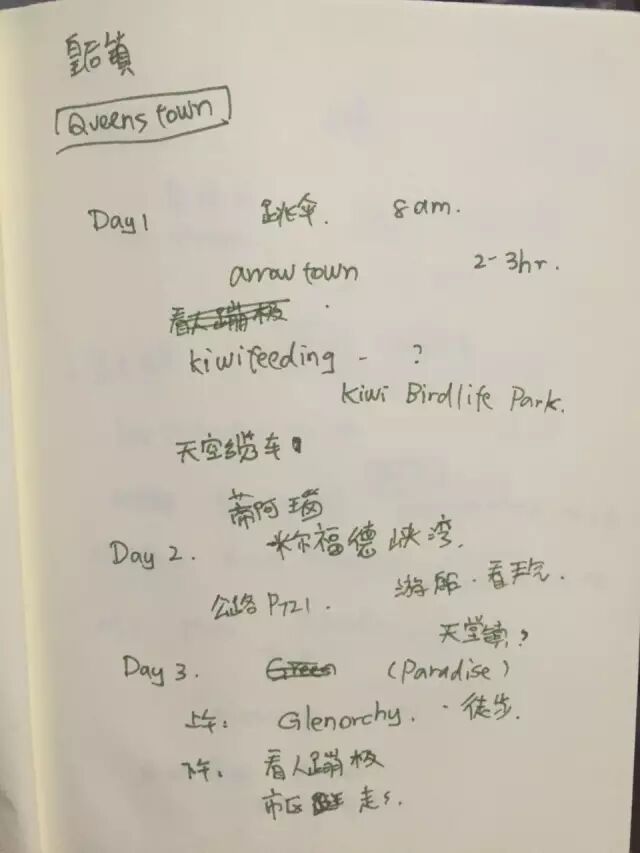 皇后鎮
Queenstown
Day 1 跳伞. 8am.
arrowtown 2-3hr.
看人蹦极
kiwi feeding - ?
Kiwi Birdlife Park.
天空缆车
蒂阿瑙
Day 2. 米尔福德峡湾.
公路P721. 游船.看天气.
天堂镇?
Day 3. Green (Paradise)
上午: Glenorchy. ·徒步.
下午: 看人蹦极
市区 走走.